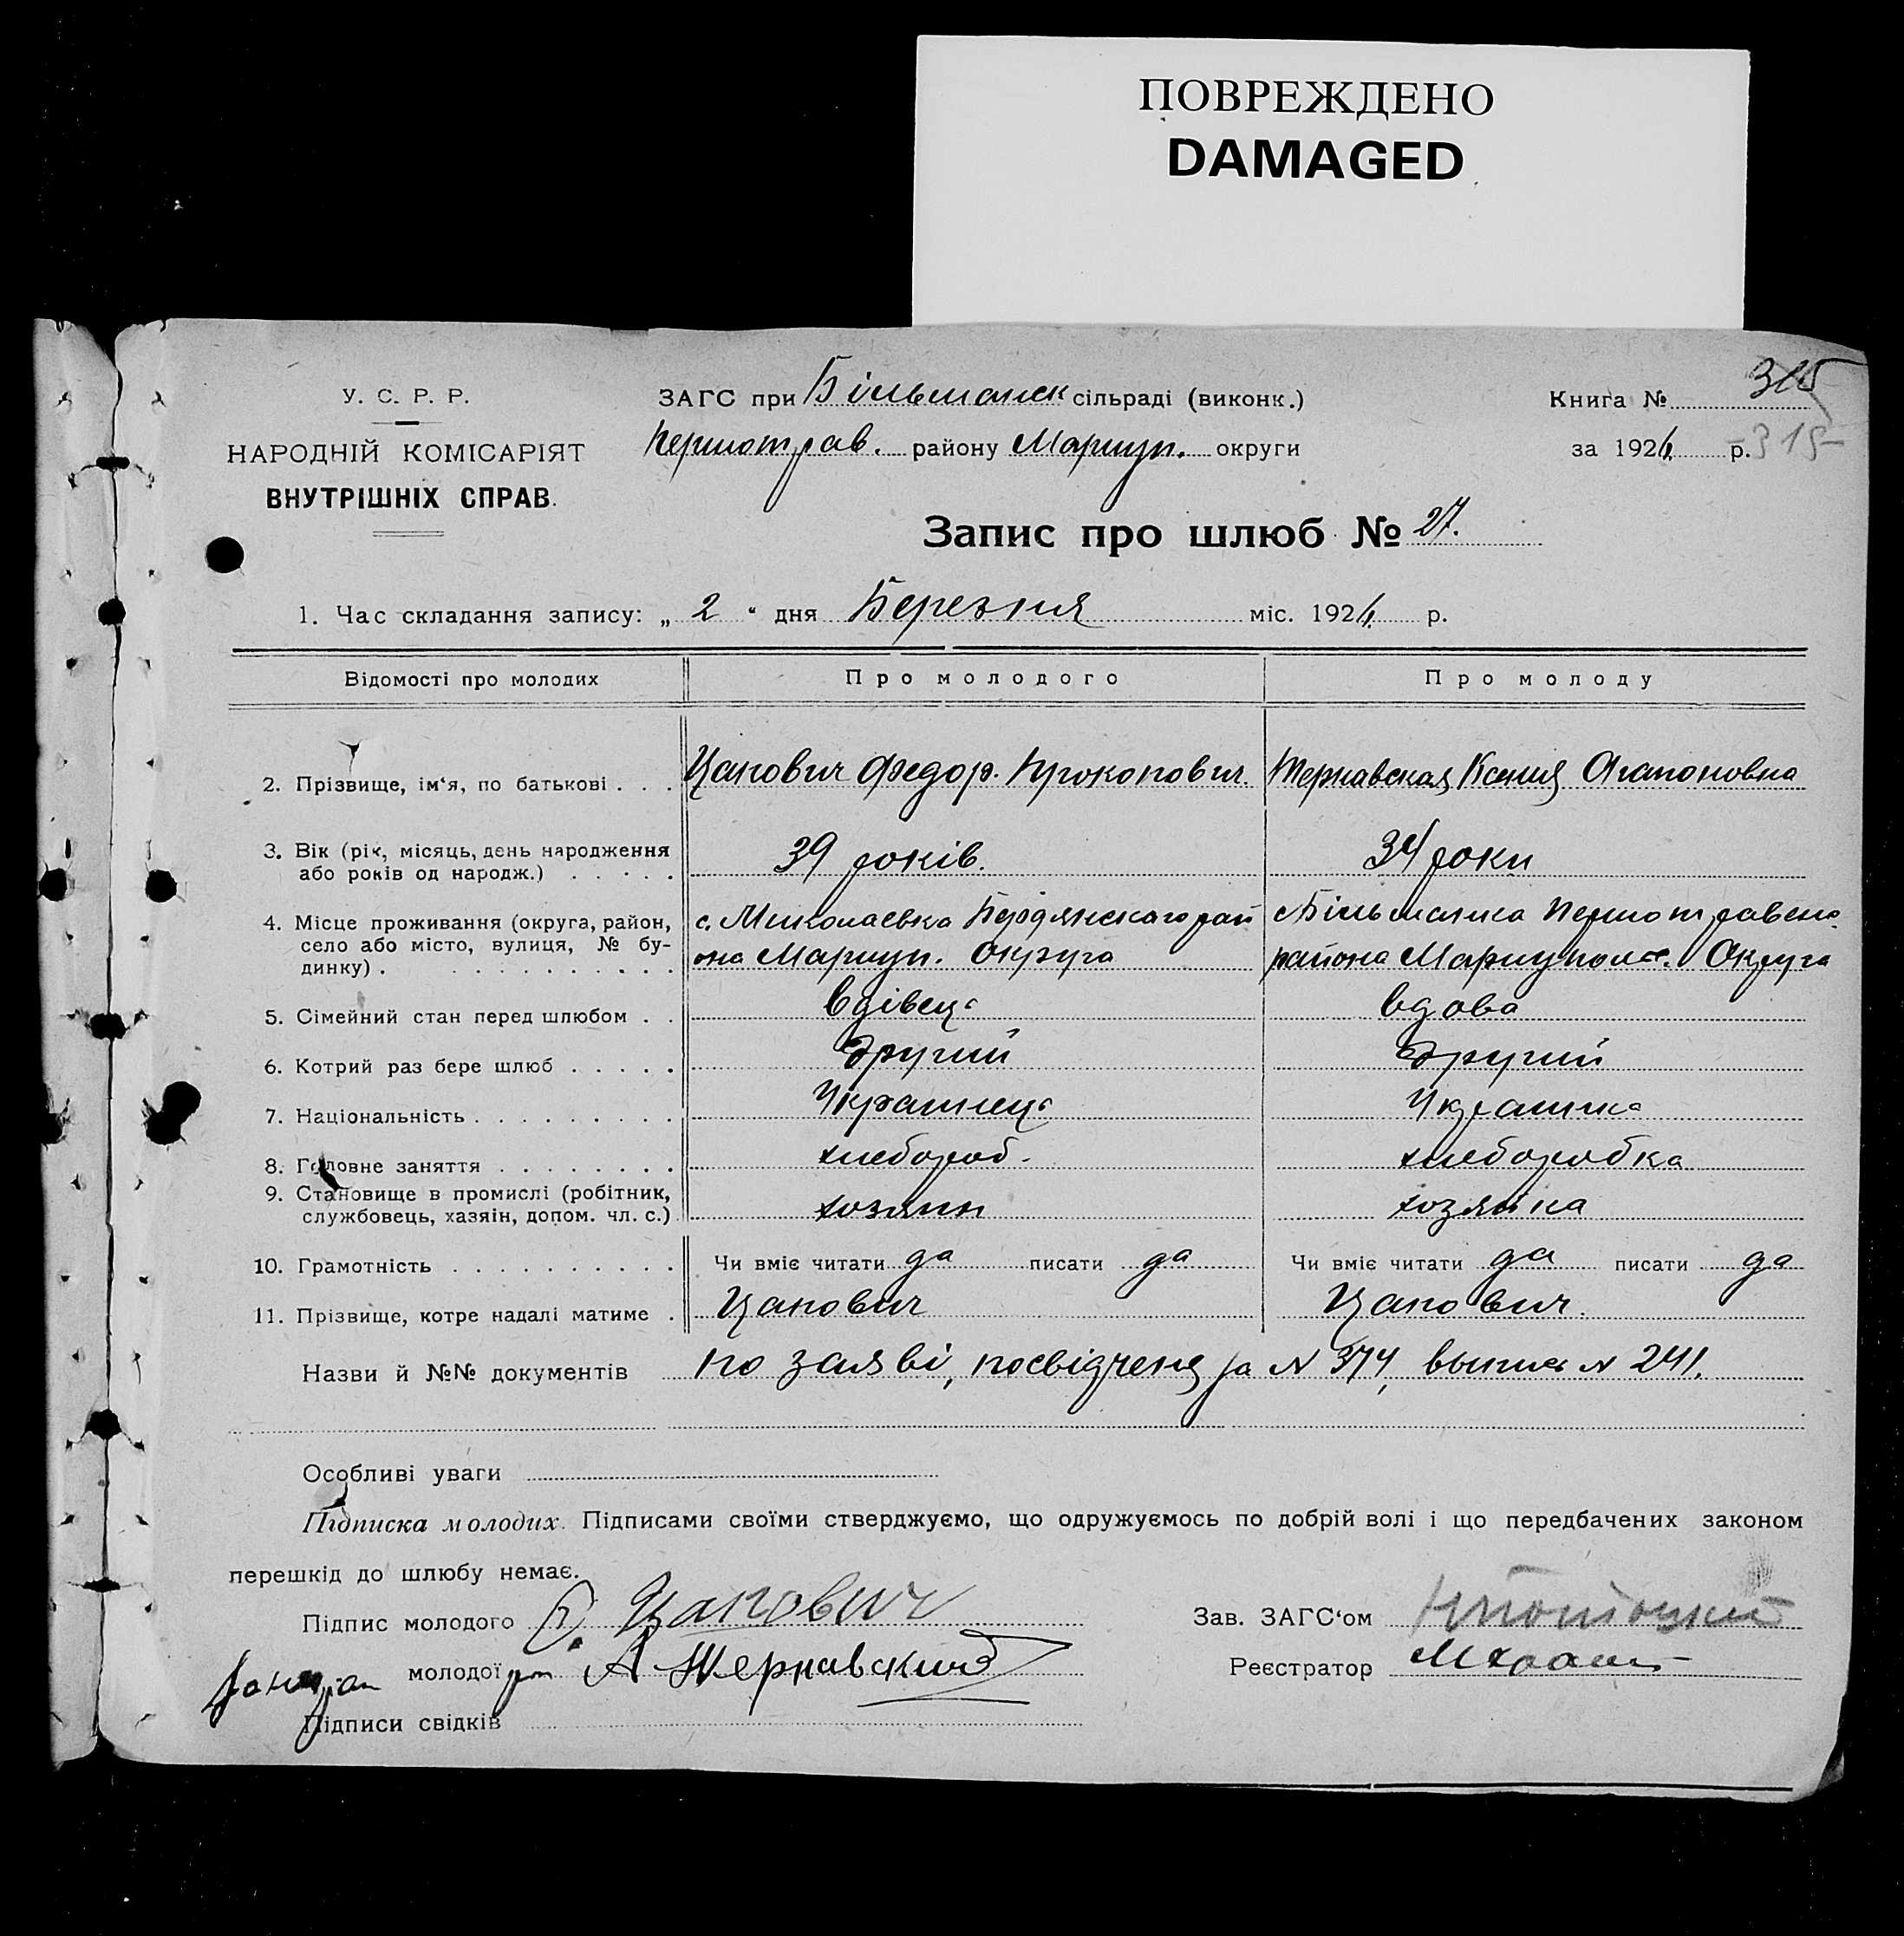 ПОВРЕЖДЕНО
DAMAGED
У. С. Р. Р.
НАРОДНІЙ КОМІСАРІЯТ
ВНУТРІШНІХ СПРАВ.
ЗАГС при Більманск сільраді (виконк.)
Першотрав. району Мариуп. округи
Книга № 315
за 1926 р. 315
Запис про шлюб № 27.
1. Час складання запису: „ 2 “ дня Березня міс. 1926 р.
Відомості про молодих Про молодого Про молоду
2. Прізвище, ім‘я, по батькові . . . Цапович Федор. Прокопович. Тернавская Ксения Агапоновна
3. Вік (рік, місяць, день народження
або років од народж.) . . . . . 39 років. 34 роки
4. Місце проживання (округа, район, с. Миколаевка Бердянскаго рай с Більманка Першотравено.
село або місто, вулиця, № бу-
динку) . . . . . . . . . . . она Мариуп. Округа района Мариупольс. Округа
5. Сімейний стан перед шлюбом . . вдівець вдова
6. Котрий раз бере шлюб . . . . . другий другий
7. Національність . . . . . . . . . Украинець Украинка
8. Головне заняття . . . . . . . . хлебороб. хлеборобка
9. Становище в промислі (робітник,
службовець, хазяін, допом. чл. с.) хозяин хозяйка
10. Грамотність . . . . . . . . . . Чи вміє читати да писати да Чи вміє читати да писати да
11. Прізвище, котре надалі матиме . Цапович Цапович.
Назви й №№ документів по заяві, посвідченя за N 374, выпись N 241.
Особливі уваги
Підписка молодих. Підписами своїми стверджуємо, що одружуємось по добрій волі і що передбачених законом
перешкід до шлюбу немає.
Підпис молодого Ф. Цапович Зав. ЗАГС‘ом
молодої А Тернавский Реєстратор
Підписи свідків